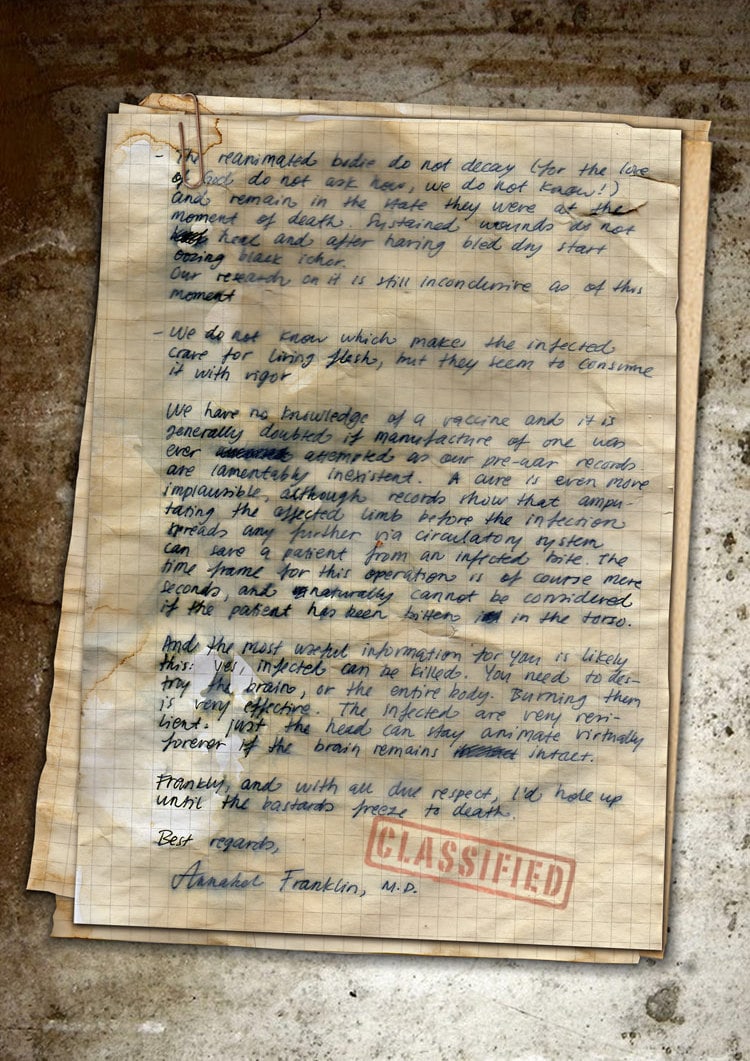 - The reanimated bodie do not decay (for the love
of God do not ask how, we do not know!)
and remain in the state they were at the
moment of death. Sustained wounds do not
heal and after having bled dry start
oozing black ichor.
Our research on it is still inconclusive as of this
moment
- We do not know which makes the infected
crave for living flesh, but they seem to consume
it with vigor
We have no knowledge of a vaccine and it is
generally doubted if manufacture of one was
ever attempted as our pre-war records
are lamentably inexistent. A cure is even more
implausible, although records show that ampu-
tating the affected limb before the infection
spreads any further via circulatory system
can save a patient from an infected bite. The
time frame for this operation is of course mere
seconds, and naturally cannot be considered
if the patient has been bitten in the torso.
And the most useful information for you is likely
this: yes, infected can be killed. You need to des-
troy the brain, or the entire body. Burning them
is very effective. The infected are very resi-
lient: just the head can stay animate virtually
forever if the brain remains intact.
Frankly, and with all due respect, I'd hole up
until the bastards freeze to death.
Best regards,
Annabel Franklin, M.D.
CLASSIFIED